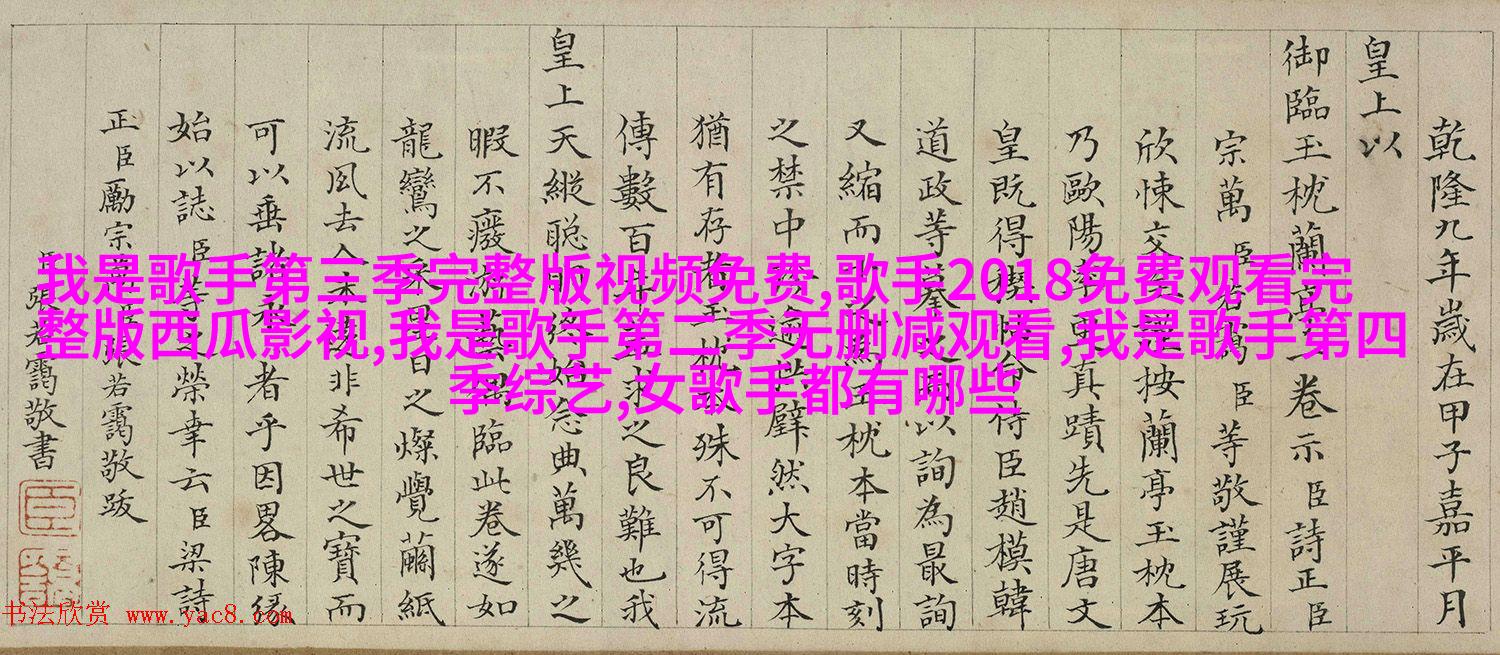 乾隆九年歲在甲子嘉平月
皇上以
御臨玉枕蘭亭一卷示臣詩正臣
宗萬臣若靄臣等敬謹展玩
欣悚交至謹按蘭亭玉枕本
乃歐陽率更真蹟先是唐文
皇既得禊帖命侍臣趙模韓
道政等摹之而以詢為最詢
又縮而小之為玉枕本當時刻
之禁中然大字本
猶有存者玉枕殊不可得流
傳數百年求之良難也我
皇上天縱聰明終始念典萬幾之
暇不癈游藝臨此卷遂如
龍鸞之采日之燦覺繭紙
流風去人未遠非希世之寶而
可以垂者乎因畧陳緣
始以誌臣等之榮幸云臣梁詩
正臣勵宗萬臣張若靄敬跋
臣張若靄敬書
我是歌手第三季完整版视频免费,歌手2018免费观看完
整版西瓜影视,我是歌手第二季无删减观看,我是歌手第四
季综艺,女歌手都有哪些
书法欣赏 www.yac8.com